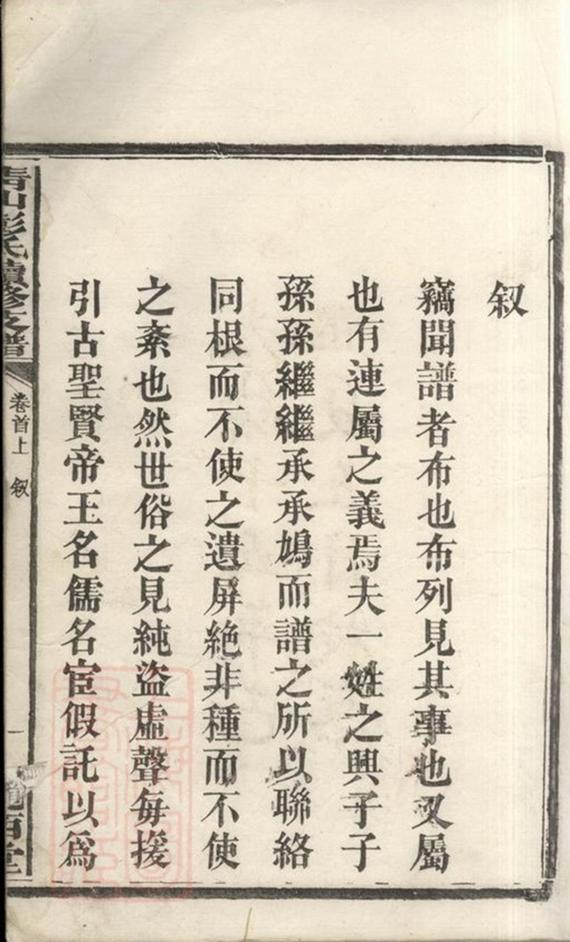 叙
竊聞譜者布也布列見其事也又屬
也有連屬之義焉夫一姓之興子子
孫孫繼繼承承鳩而譜之所以聯絡
同根而不使之遺屏絶非種而不使
之紊也然世俗之見純盜虛聲每援
引古聖賢帝王名儒名宦假託以爲
青山彭氏續修支譜
卷首上 叙
一